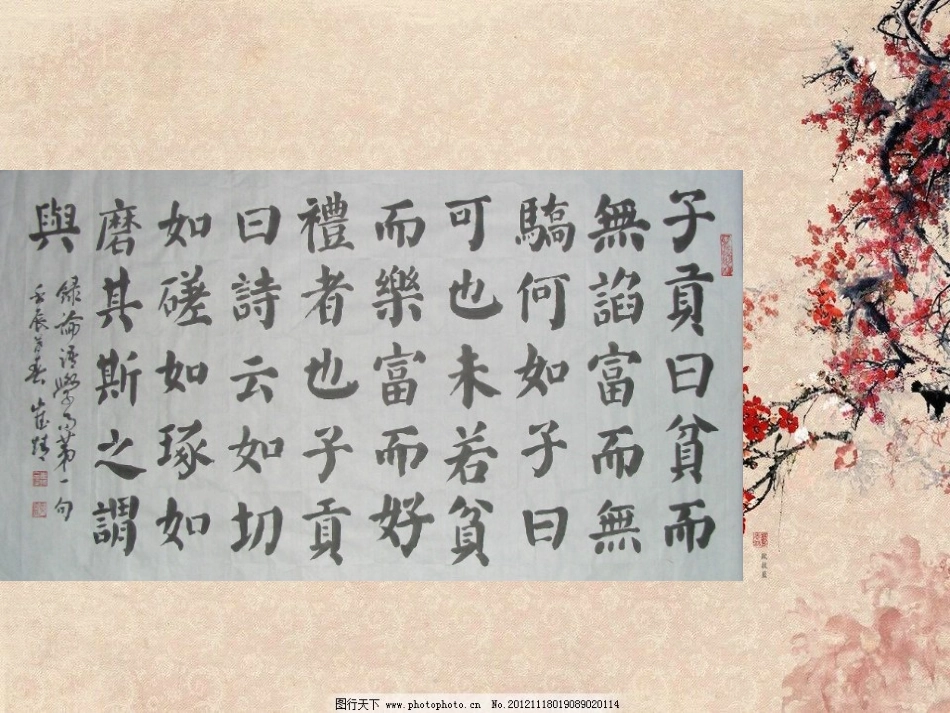 子貢曰貧而
無諂富而無
驕何如子曰
可也未若貧
而樂富而好
禮者也子貢
曰詩云如切
如磋如琢如
磨其斯之謂
與
錄論語學而第一句
壬辰
图行天下 www.photophoto.cn No.20121118019089020114